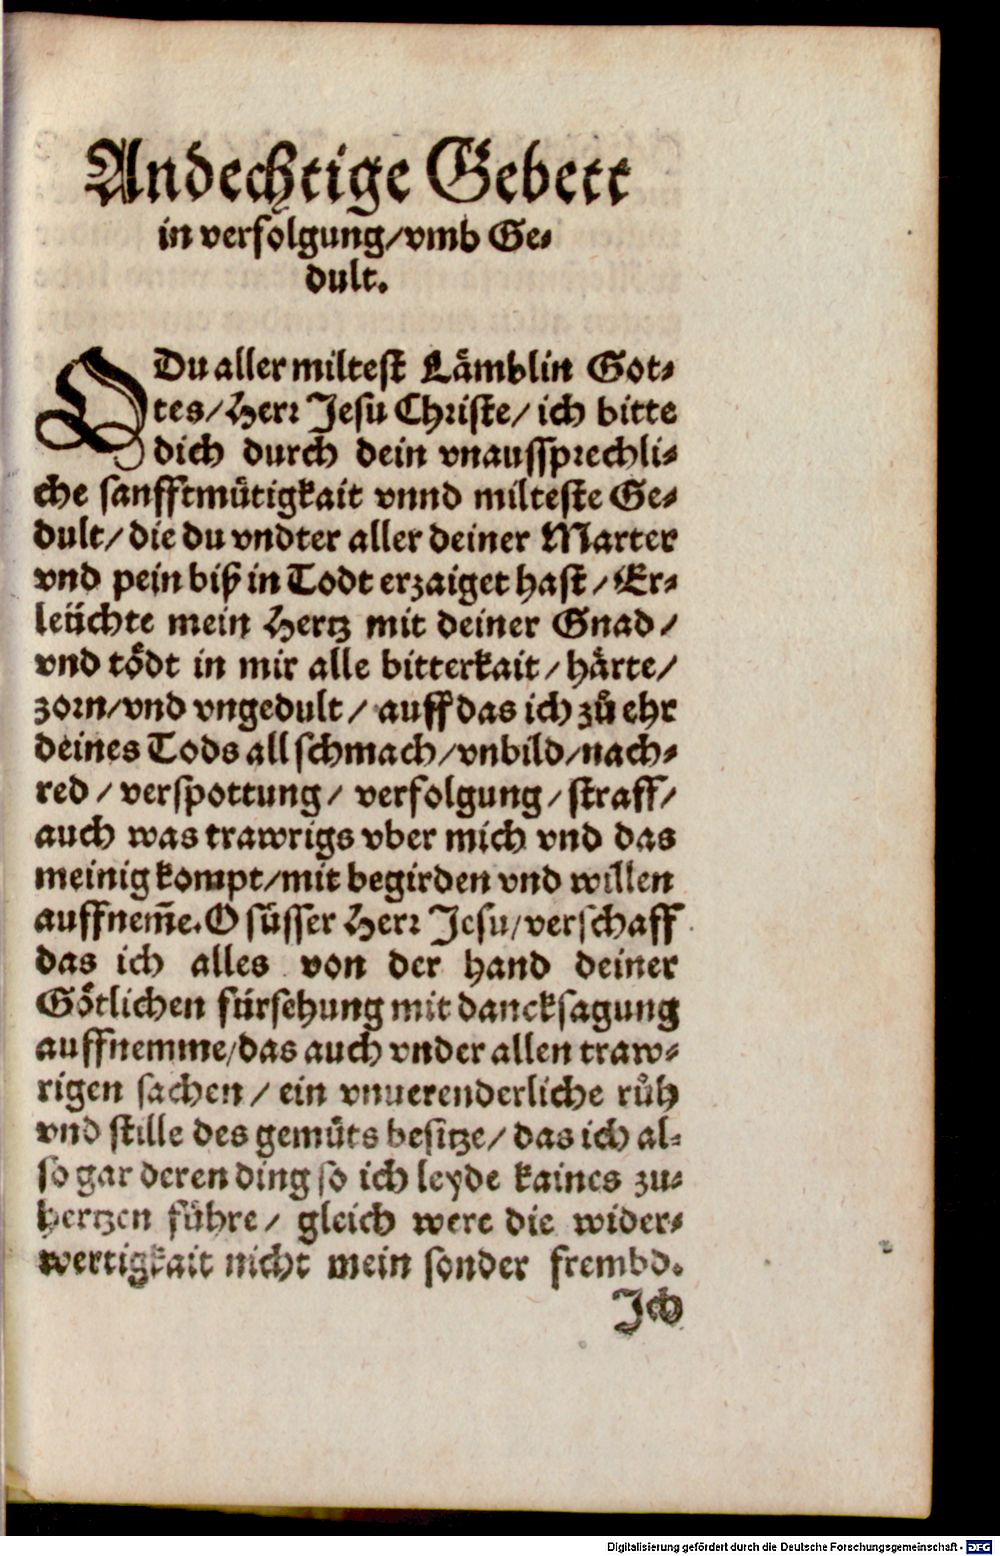 Andechtige Gebett
in verfolgung/vmb Ge-
dult.
O Du aller miltest Lämblin Got-
tes/Herr Jesu Christe/ich bitte
dich durch dein vnaussprechli-
che sanfftmütigkait vnnd milteste Ge-
dult/die du vndter aller deiner Marter
vnd pein biß in Todt erzaiget hast/Er-
leüchte mein Hertz mit deiner Gnad/
vnd tödt in mir alle bitterkait/härte/
zorn/vnd vngedult/auff das ich zů ehr
deines Tods all schmach/vnbild/nach-
red/verspottung/verfolgung/straff/
auch was trawrigs vber mich vnd das
meinig kompt/mit begirden vnd willen
auffnem̃e. O süsser Herr Jesu/verschaff
das ich alles von der hand deiner
Götlichen fürsehung mit dancksagung
auffnemme/das auch vnder allen traw-
rigen sachen/ein vnuerenderliche růh
vnd stille des gemüts besitze/das ich al-
so gar deren ding so ich leyde kaines zu-
hertzen führe/gleich were die wider-
wertigkait nicht mein sonder frembd.
Ich
Digitalisierung gefördert durch die Deutsche Forschungsgemeinschaft - DFG